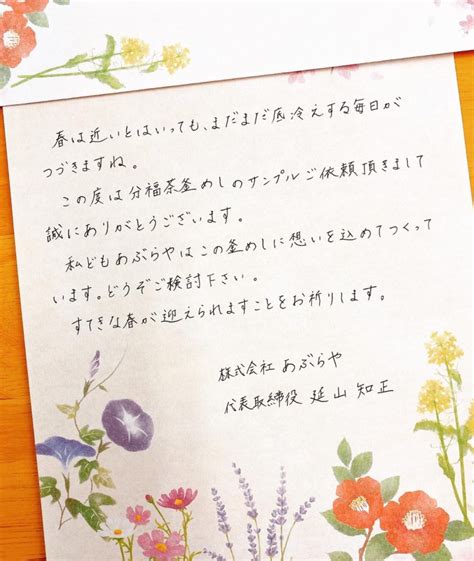 春は近いとはいっても、まだまだ底冷えする毎日が
つづきますね。
この度は分福茶釜めしのサンプルご依頼頂きまして
誠にありがとうございます。
私どもあぶらやはこの釜めしに想いを込めてつくって
います。どうぞご検討下さい。
すてきな春が迎えられますことをお祈りします。
株式会社 あぶらや
代表取締役 延山 知正